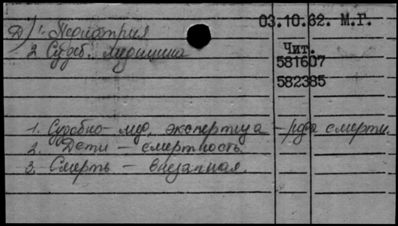 03.10.62. М.Г.
Д) 1. Педиатрия
2 Судеб. медицина
Чит.
581607
582385
1. Судебно-мед. экспертиза - рода смерти.
2. Дети - смертность.
3. Смерть - внезапная.